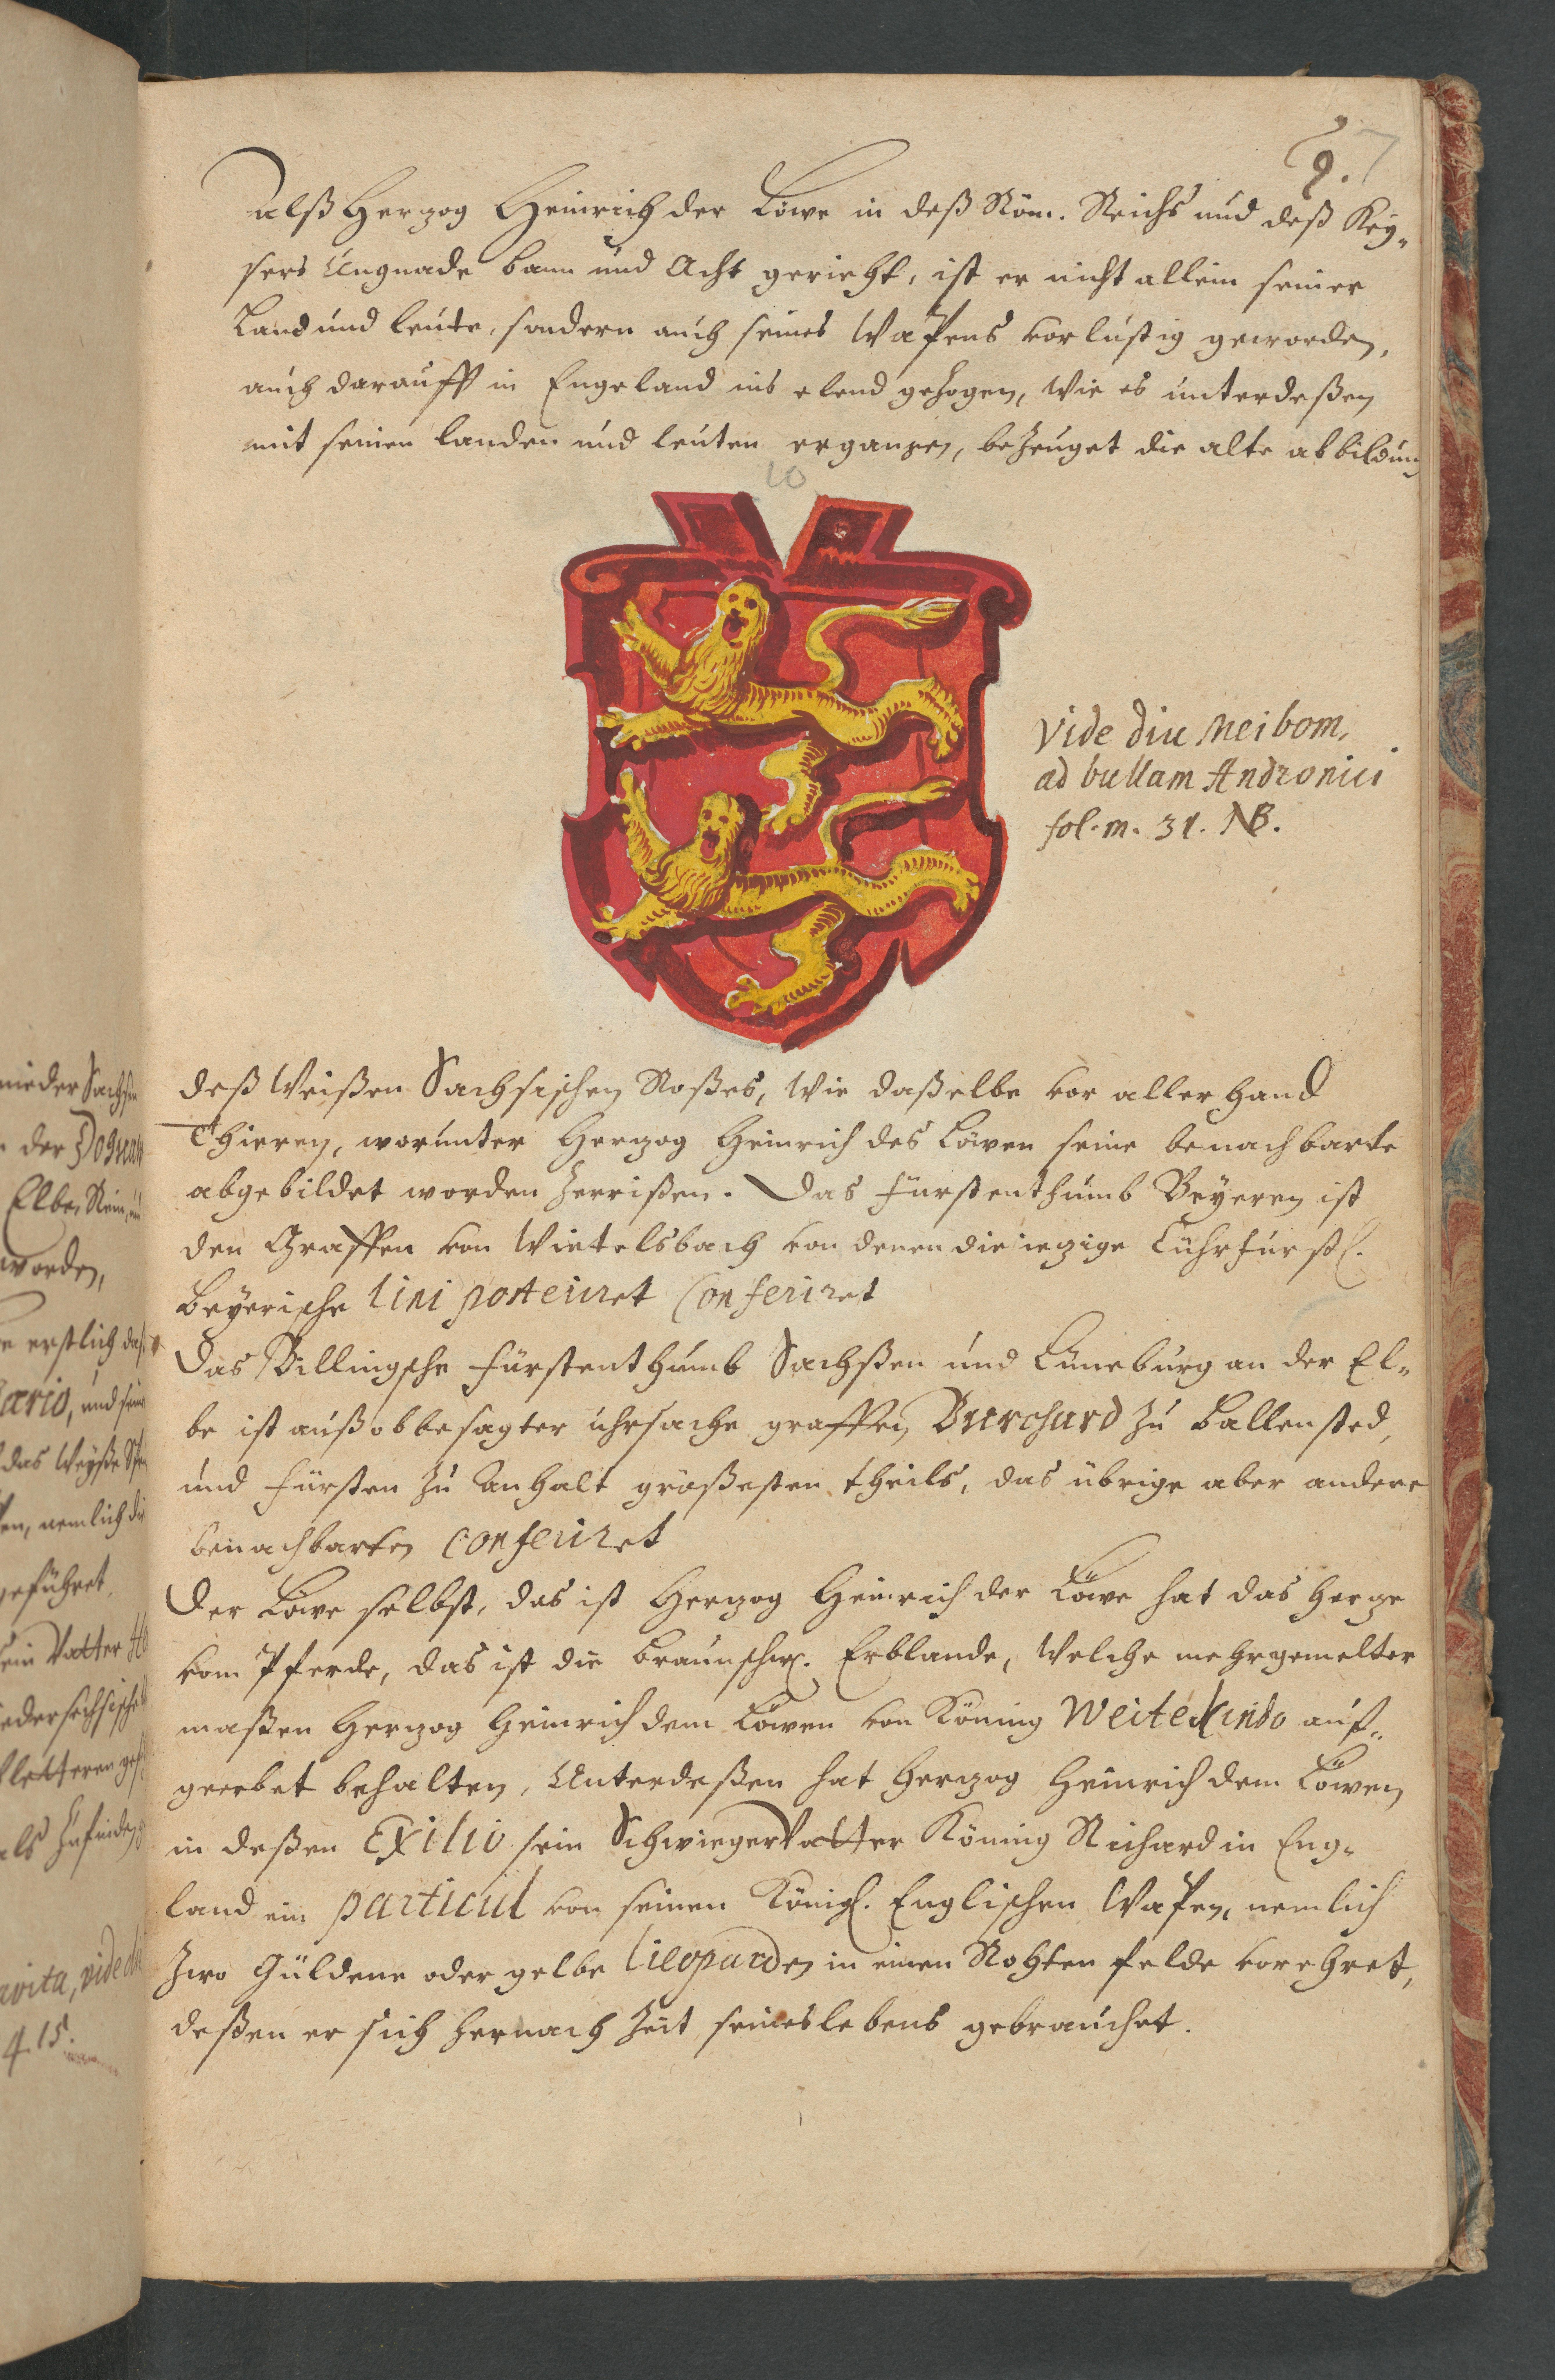 9. 7
alß Herzog Heinrich der Löwe in deß Röm. Reichs und deß Key-
sers Ungnade bann und Acht gerieht, ist er nicht allein seiner
Land und leute, sondern auch seines Wapens vorlustig geworden,
auch darauff in Engeland ins elend gezogen, Wie es unterdeßen
mit seinen landen und leuten ergangen, bezeuget die alte abbildung
10
Vide diu Meibom,
ad bullam Andronici
fol. m. 31. NB.
deß Weißen Sachsischen Roßes, Wie daßelbe vor allerhand
Thieren, worunter Herzog Heinrich des Löwen seine benachbarte
abgebildet worden zerrißen. Das Fürstenthumb Beyeren ist
den Graffen von Wietelsbach von denen die iezige Cuhrfürstl.
Beyerische lini posteriret conferiret
Das Billingsche Fürstenthumb Sachßen und Lüneburg an der El-
be ist auß obbesagter uhrsache graffen Burchard zu Ballensted,
und Fürsten zu Anhalt größesten theils, das übrige aber andere
benachbarten conferiret
Der Löwe selbst, das ist Herzog Heinrich der Löwe hat das Herze
vom Pferde, das ist die Braunschw. Erblande, Welche mehrgemelter
maßen Herzog Heinrich dem Löwen von König Weitekindo auf-
geerbet behalten, Unterdeßen hat Herzog Heinrich dem Löwen
in deßen Exilio sein Schwieger Vatter König Richard in Eng-
land ein particul von seinen Königl. Englischen Wapen, nemlich
Zwo Güldene oder gelbe lieoparden in einen Rohten felde vorehret,
deßen er sich hernach Zeit seines lebens gebrauchet.